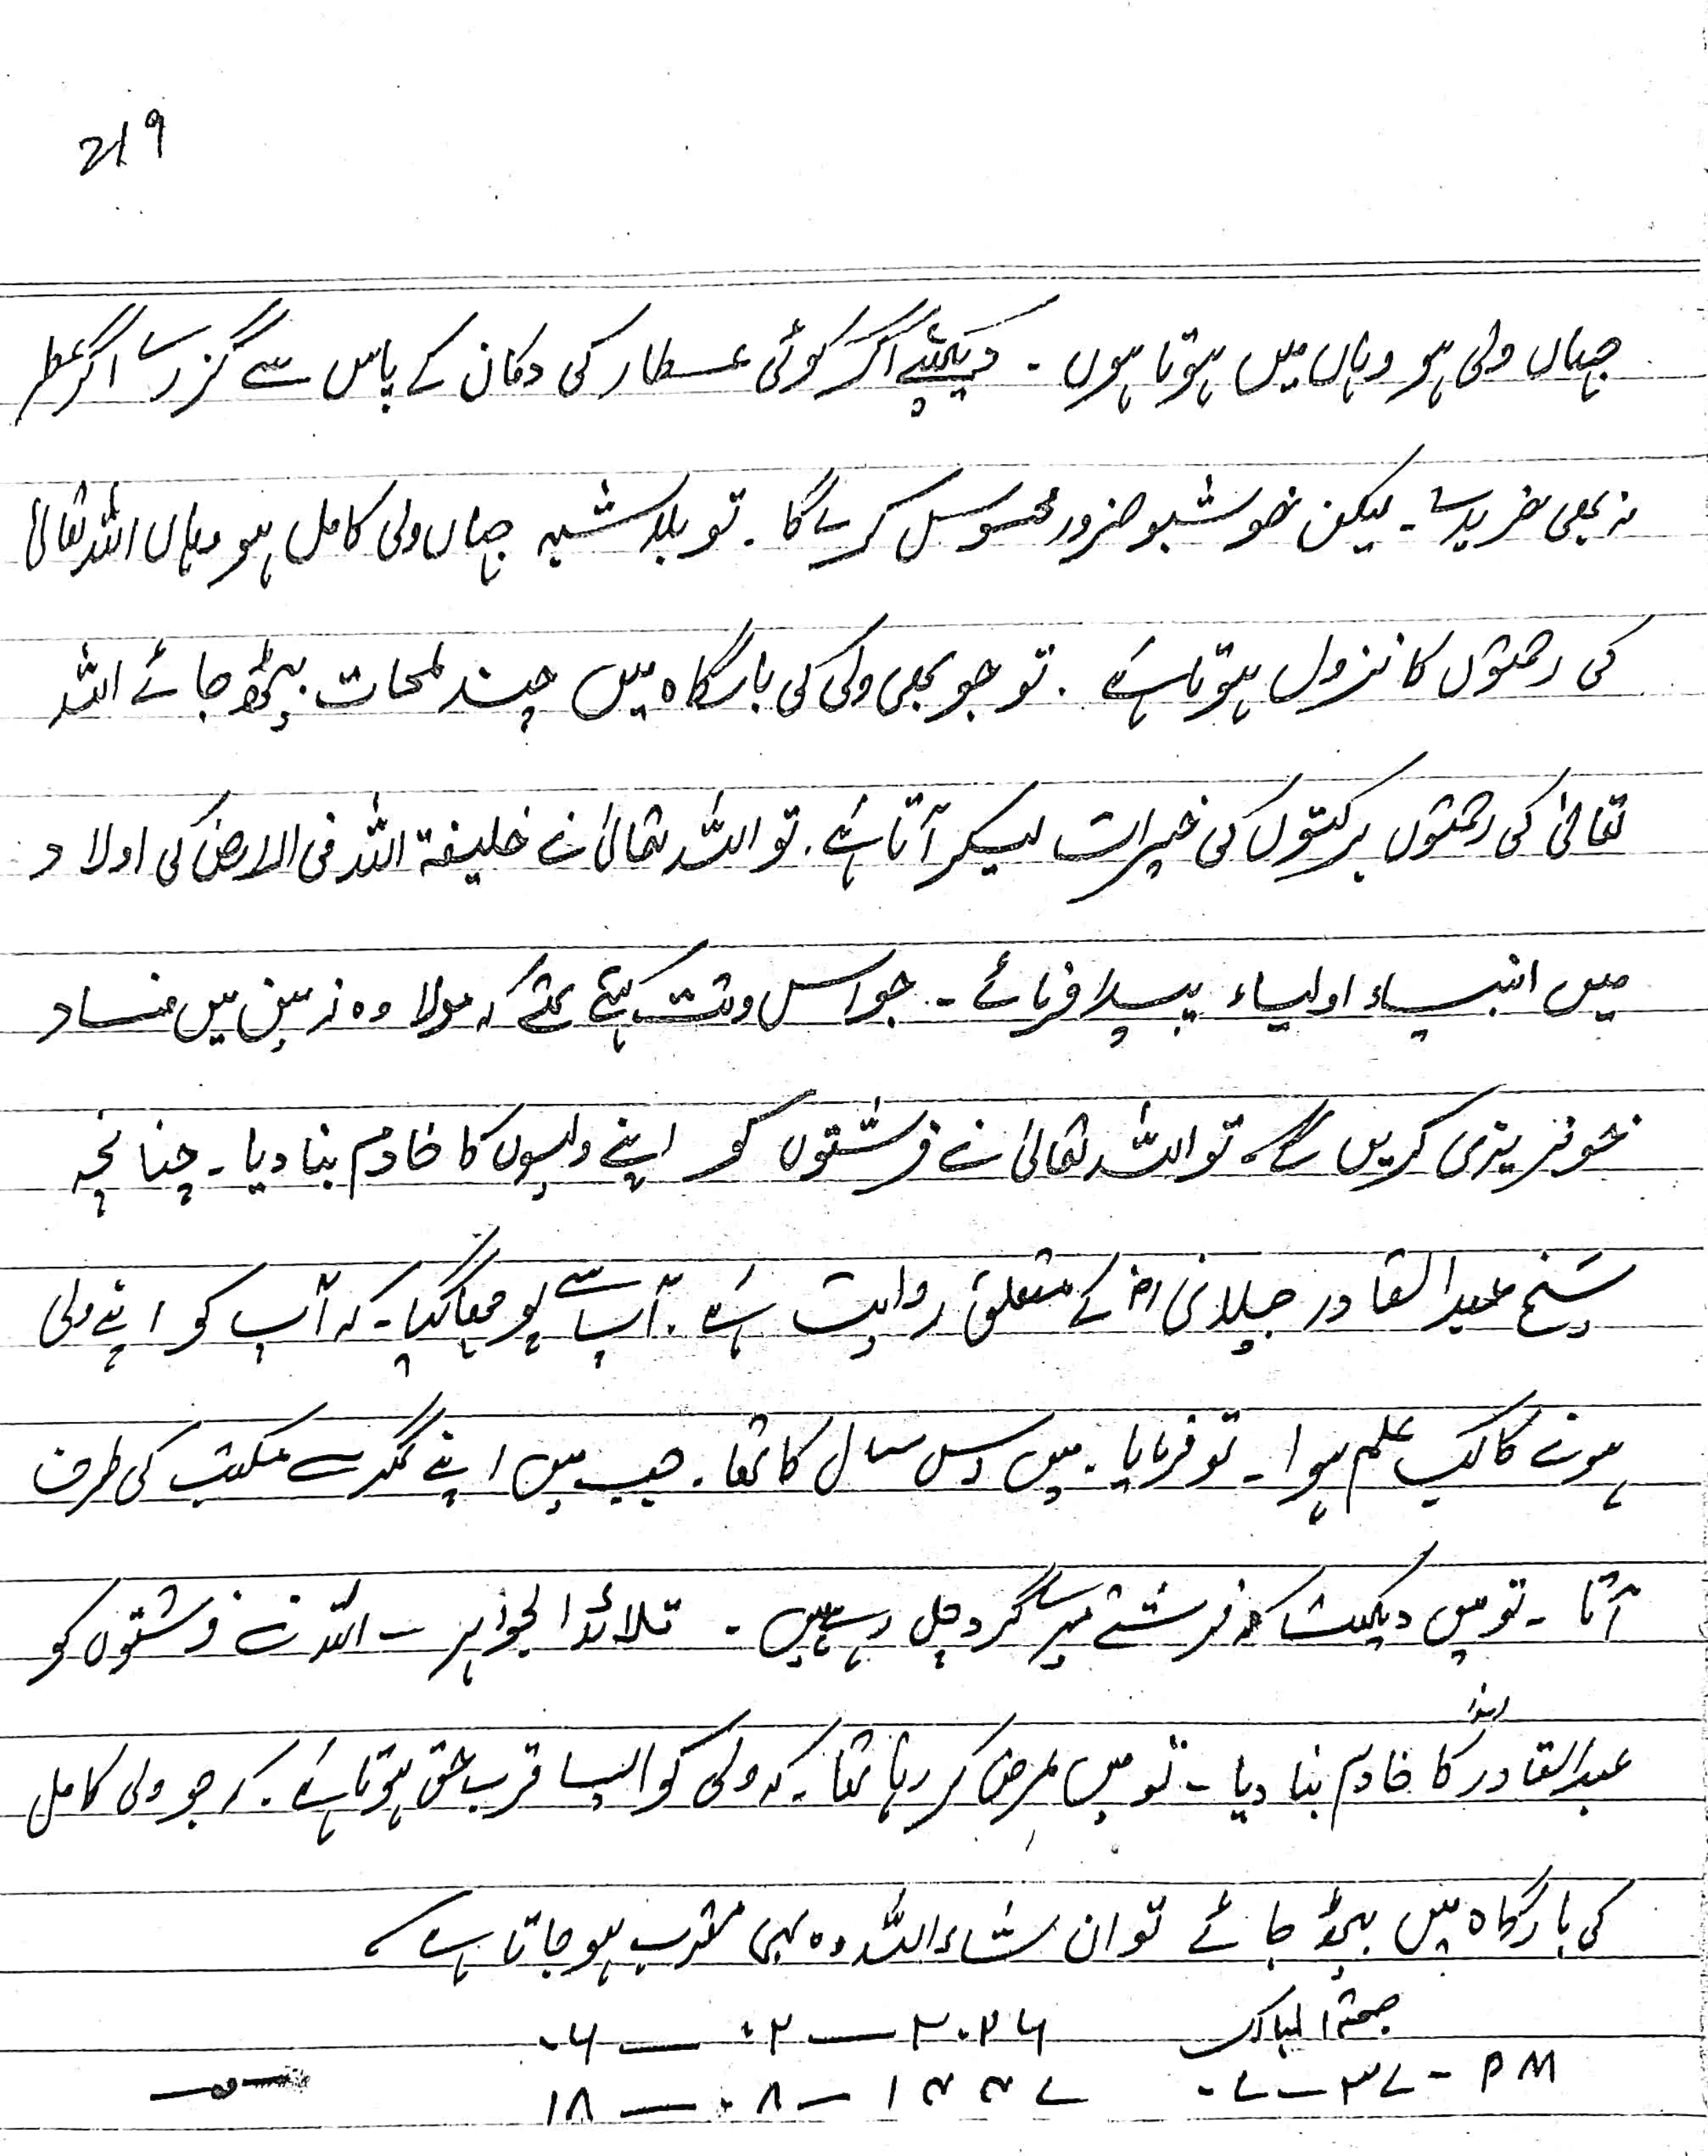 219
جہاں ولی ہو وہاں میں ہوتا ہوں ۔ دیکھئے اگر کوئی عطار کی دکان کے پاس سے گزرے اگر عطر
نہ بھی خریدے ۔ لیکن خوشبو ضرور محسوس کرے گا ۔ تو بلا شبہ جہاں ولی کامل ہو وہاں اللہ تعالیٰ
کی رحمتوں کا نزول ہوتا ہے ۔ تو جو بھی ولی کی بارگاہ میں چند لمحات بیٹھ جائے اللہ
تعالیٰ کی رحمتوں برکتوں کی خیرات لیکر آتا ہے ۔ تو اللہ تعالیٰ نے خلیفۃ اللہ فی الارض کی اولاد
میں انبیاء اولیاء پیدا فرمائے ۔ جو اس وقت کہتے تھے کہ مولا وہ زمین میں فساد
خونریزی کریں گے، تو اللہ تعالیٰ نے فرشتوں کو اپنے ولیوں کا خادم بنا دیا ۔ چنانچہ
شیخ عبدالقادر جیلانی رضہ کے متعلق روایت ہے ۔ آپ سے پوچھا گیا ۔ کہ آپ کو اپنے ولی
ہونے کا کب علم ہوا ۔ تو فرمایا ۔ میں دس سال کا تھا ۔ جب میں اپنے گھر سے مکتب کی طرف
آتا ۔ تو میں دیکھتا کہ فرشتے میرے گرد چل رہے ہیں ۔ قلائد الجواہر ۔ اللہ نے فرشتوں کو
عبدالقادر رضہ کا خادم بنا دیا ۔ تو میں عرض کر رہا تھا ۔ کہ ولی کو ایسا قرب حق ہوتا ہے ۔ کہ جو ولی کامل
کی بارگاہ میں بیٹھ جائے تو ان شاء اللہ وہ بھی مقرب ہو جاتا ہے،
جمعۃ المبارک ۰۶ — ۰۲ — ۲۰۲۶
۰۷ — ۳۷ - PM ۱۸ — ۰۸ — ۱۴۴۷